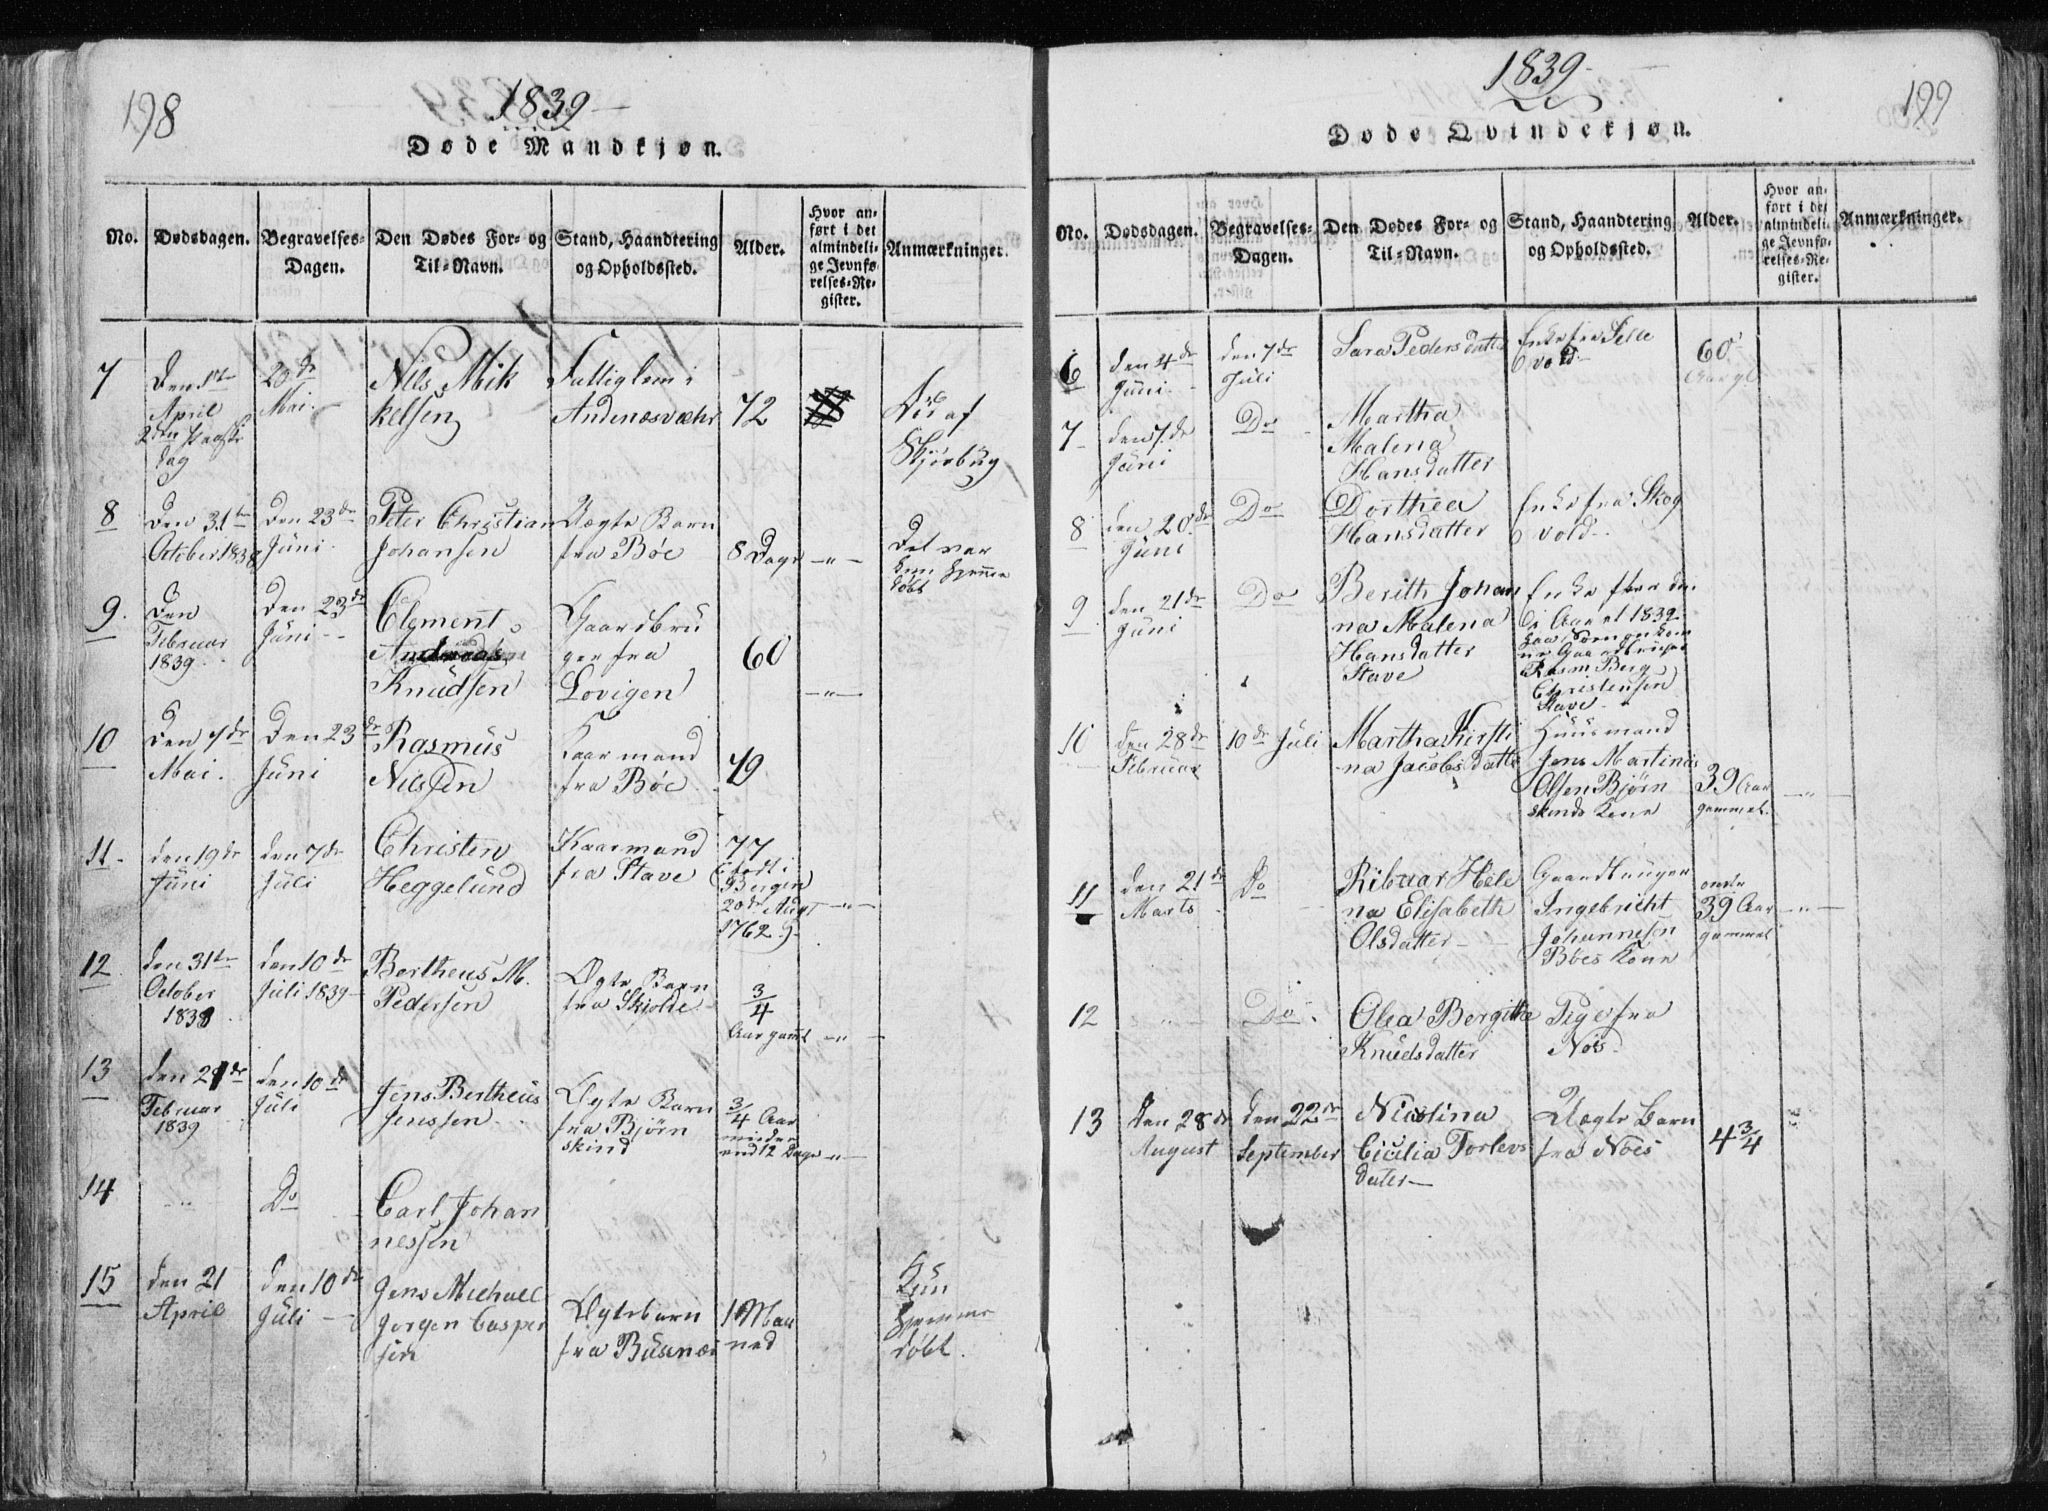 198
1839
Døde Mandkjøn.
No.
Dødsdagen.
Begravelses-
Dagen.
Den Dødes For- og
Til-Navn.
Stand, Haandtering
og Opholdssted.
Alder.
Hvor an-
ført i det
almindeli-
ge Jevnfø-
relses-Re-
gister.
Anmærkninger.
7
Den 1te
April
2den Paaske
dag
20de
Mai.
Nils Mik
kelsen
Fattiglem i
Andenæsvæhr
72
Död af
Skjörbüg
8
Den 31te
October 1838
Den 23de
Jüni.
Peter Christian
Johansen
Uægte Barn
fra Böe
8 Dage
Det var
kun hjemme
döbt
9.
Den
Februar
1839
Den 23de
Jüni
Clement
Knüdsen
Gaardbrü
ger fra
Lovigen
60
10
Den 7de
Mai.
Den 23de
Jüni
Rasmüs
Nilssen
Kaarmand
fra Böe
49
11.
den 19de
Jüni
den 7de
Jüli
Christen
Heggelünd
Kaarmand
fra Stave
77
(födt i
Bergen
20de Augt
1762.)
12
den 31te
October
1838
den 10de
Jüli 1839
Bertheus M.
Pedersen
Ægte Barn
fra Skjolde
3/4
Aar gamt
13
den 21de
Februar
1839
den 10de
Jüli
Jens Bertheüs
Jenssen
Ægte Barn
fra Björn
skind
3/4 Aar
mindre
end 12 Dage
14
Do
Carl Johan
nessen
15
den 21
April
den 10de
Jüli
Jens Michael
Jörgen Casper
sen
Ægte barn
fra Büsnæs
1 Maa
ned
Kün
hjemme
döbt.
1839
199
Døde Qvindekjøn.
No.
Dødsdagen.
Begravelses-
Dagen.
Den Dødes For- og
Til-Navn.
Stand, Haandtering
og Opholdssted.
Alder.
Hvor an-
ført i det
almindeli-
ge Jevnfø-
relses-Re-
gister.
Anmærkninger.
6
den 4de
Jüni
den 7de
Jüli
Sara Pedersdatter
Enke fra
vold
60
7
den 7de
Jüni
Do
Martha
Malena
Hansdatter
8
den 20de
Jüni
Do
Dorthea
Hansdatter
Enke fra Skog
vold
9
den 21de
Jüni
Do
Berith Johan
na Malena
Hansdatter
Stave
Enke efter den
i Aaret 1839
Gaardbrüger
Rasm Berg
Christensen
Stave
10
den 28de
Februar
10de Jüli
Martha Kirsti
na Jacobsdatter
Hüüsmand
Jens Martinüs
Olsen Björn
skinds Kone
39 Aar
gammel.
11
den 21de
Marts
Do
Ribuar Hele
na Elisabeth
Olsdatter
Gaardbrüger
Ingebricht
Johannesen
Böes Kone
39 Aar
gammel
12
Do
Olea Bergitha
Knüdsdatter
Pige fra
Nöis
13
Den 28de
August
den 22de
September
Nicolina
Cicilia Torlevs
datter
Uægte Barn
fra Nöes
4 3/4